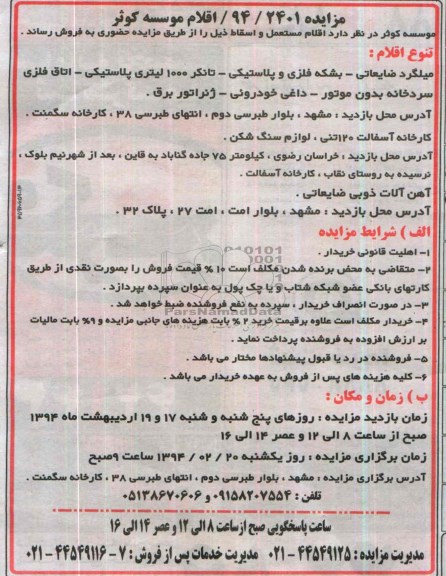 مزایده ۲۴۰۱ / ۹۴ / اقلام موسسه کوثر
موسسه کوثر در نظر دارد اقلام مستعمل و اسقاط ذیل را از طریق مزایده حضوری به فروش رساند .
تنوع اقلام :
میلگرد ضایعاتی – بشکه فلزی و پلاستیکی – تانکر ۱۰۰۰ لیتری پلاستیکی – اتاق فلزی
سردخانه بدون موتور – داغی خودرونی – ژنراتور برق .
آدرس محل بازدید : مشهد ، بلوار طبرسی دوم ، انتهای طبرسی ۳۸ ، کارخانه سگمنت .
کارخانه آسفالت ۱۲۰تنی ، لوازم سنگ شکن .
آدرس محل بازدید : خراسان رضوی ، کیلومتر ۷۵ جاده گناباد به قاین ، بعد از شهرنیم بلوک ،
نرسیده به روستای نقاب ، کارخانه آسفالت .
آهن آلات ذوبی ضایعاتی .
آدرس محل بازدید : مشهد ، بلوار امت ، امت ۲۷ ، پلاک ۳۲ .
الف ) شرایط مزایده
۱– اهلیت قانونی خریدار .
۲– متقاضی به محض برنده شدن مکلف است ۱۰ % قیمت فروش را بصورت نقدی از طریق
کارتهای بانکی عضو شبکه شتاب و یا چک پول به عنوان سپرده بپردازد .
۳– در صورت انصراف خریدار ، سپرده به نفع فروشنده ضبط خواهد شد .
۴– خریدار مکلف است علاوه برقیمت خرید ۲ % بابت هزینه های جانبی مزایده و ۹% بابت مالیات
بر ارزش افزوده به فروشنده پرداخت نماید .
۵– فروشنده در رد یا قبول پیشنهادها مختار می باشد .
۶– کلیه هزینه های پس از فروش به عهده خریدار می باشد .
ب ) زمان و مکان :
زمان بازدید مزایده : روزهای پنج شنبه و شنبه ۱۷ و ۱۹ اردیبهشت ماه ۱۳۹۴
صبح از ساعت ۸ الی ۱۲ و عصر ۱۴ الی ۱۶
زمان برگزاری مزایده : روز یکشنبه ۲۰ / ۰۲ / ۱۳۹۴ ساعت ۹صبح
آدرس برگزاری مزایده : مشهد ، بلوار طبرسی دوم ، انتهای طبرسی ۳۸ ، کارخانه سگمنت .
تلفن : ۰۹۱۵۸۲۰۷۵۵۴ و ۰۵۱۳۸۶۷۰۶۰۶
ساعت پاسخگویی صبح ازساعت ۸ الی ۱۲ و عصر ۱۴ الی ۱۶
مدیریت مزایده : ۴۴۵۴۹۱۲۵ – ۰۲۱ مدیریت خدمات پس از فروش : ۷ – ۴۴۵۴۹۱۱۶ – ۰۲۱
ParsNamadData